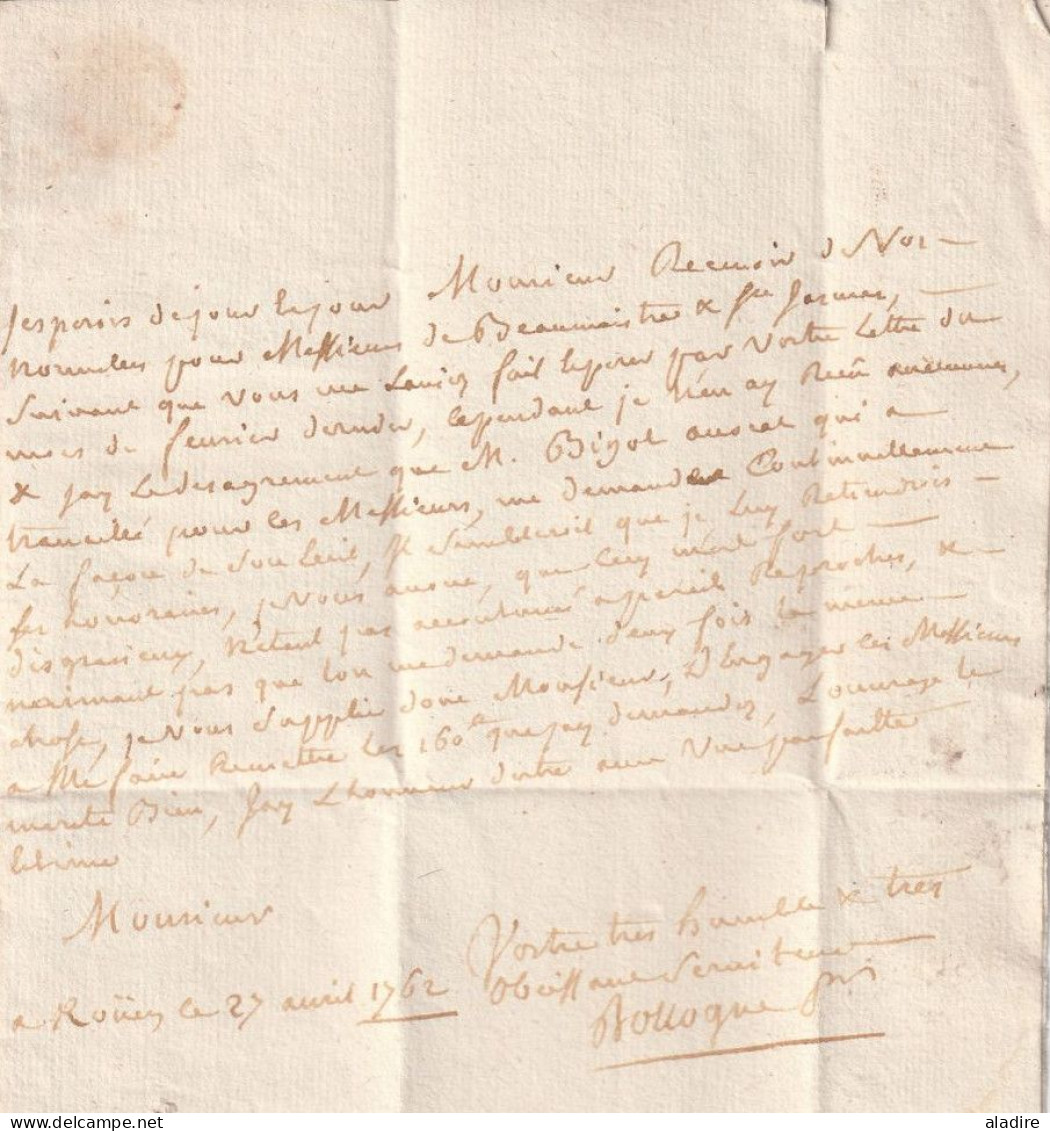 Jesperois de jour le jour Monsieur Recevoir de Nos
nouvelles pour Messieurs de Beaumaistre &
Suivant que vous me Laviez fait Esperer par Vostre Lettre du
mois de fevrier dernier, cependant je nen ay Receu aucunne,
& jay Le desagrement que M. Bigot avocat qui a
travaillé pour les Messieurs, me demande Continuellement
La façon de Son Ecrit, Il Sembleroit que je Luy Retiendrois
Ses honoraires, je Vous avoue, que Cecy mest fort
disgrasieux, Netant pas accoutumé a pareil Reproches, &
naximant pas que lon me demande deux fois la meme
chose, je Vous Supplie donc Monsieur, D'Engager les Messieurs
a Me faire Remettre les 160 que jay demandez, Louvrage le
merite Bien, Jay Lhonneur dEstre avec Une parfaitte
Estime
Monsieur
Vostre tres humble & tres
Obeissant Serviteur
a Roüen le 27 avril 1762